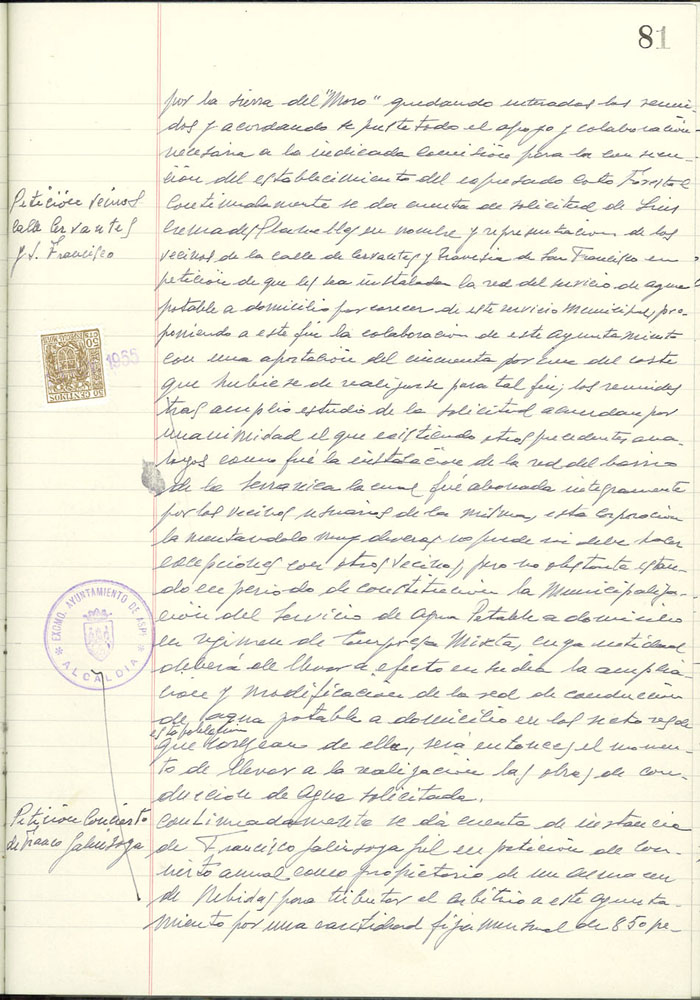 81
por la sierra del "Moro" quedando enterados los reuni-
dos y acordando se preste todo el apoyo y colaboración
necesaria a la indicada comisión para la consecu-
ción del establecimiento del expresado Coto Forestal
Petición vecinos
calle Cervantes
y S. Francisco
Continuadamente se da cuenta de solicitud de Luis
Cremades en nombre y representacion de los
vecinos de la calle de Cervantes y Travesia de San Francisco en
peticion de que les sea instalada la red del servicio de agua
potable a domicilio por carecer de este servicio Municipal, pro-
poniendo a este fin la colaboracion de este Ayuntamiento
con una aportación del cincuenta por cien del coste
que hubiese de realizarse para tal fin; los reunidos
tras amplio estudio de la solicitud acuerdan por
unanimidad el que existiendo otros precedentes ana-
logos como fué la instalación de la red del barrio
de la Serranica la cual fué abonada integramente
por los vecinos usuarios de la misma, esta corporación
lamentandolo muy deveras no puede ni debe hacer
excepciones con otros vecinos, pero no obstante estan-
do en periodo de constitucion la Municipaliza-
ción del Servicio de Agua Potable a domicilio
en regimen de Empresa Mixta, cuya entidad
deberá de llevar a efecto en su dia la amplia-
ción y modificación de la red de conducción
de agua potable a domicilio en los sectores de
esta poblacion
que carezcan de ella, será entonces el momen-
to de llevar a la realización las obras de con-
duccion de agua solicitada.
Petición Concierto
de Franco Galinsoga
Continuadamente se dá cuenta de instancia
de Francisco Galinsoga Gil en petición de con-
cierto anual como propietario de un almacen
de Bebidas para tributar el arbitrio a este Ayunta-
miento por una cantidad fija mensual de 850 pe-
50 CENTIMOS
1955
EXCMO. AYUNTAMIENTO DE ASPE
ALCALDIA